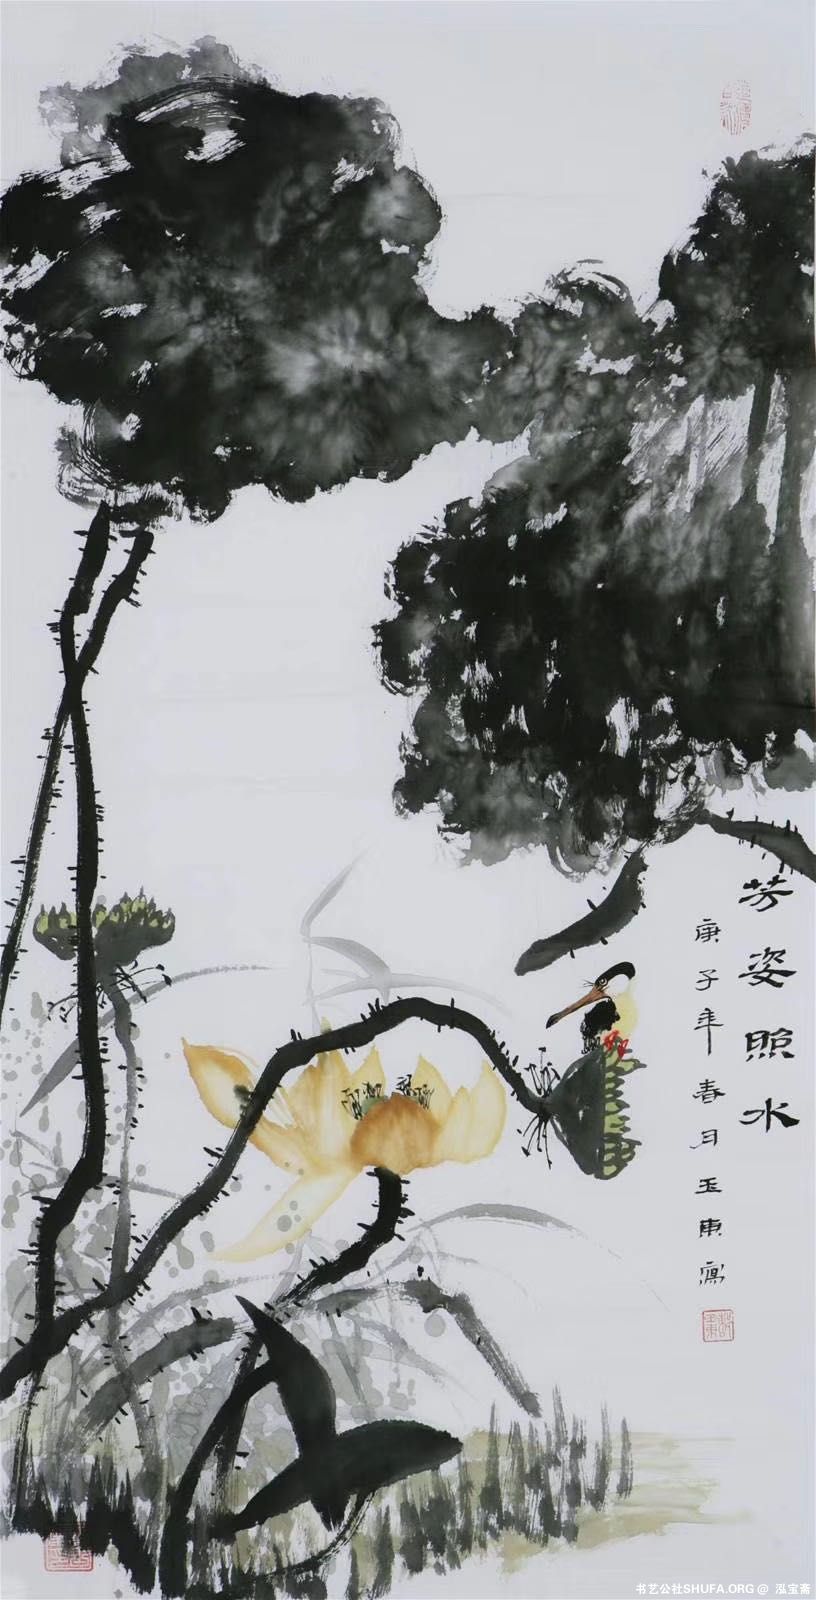 芳姿照水
庚子年春月玉東寫
书艺公社SHUFA.ORG @ 泓宝斋